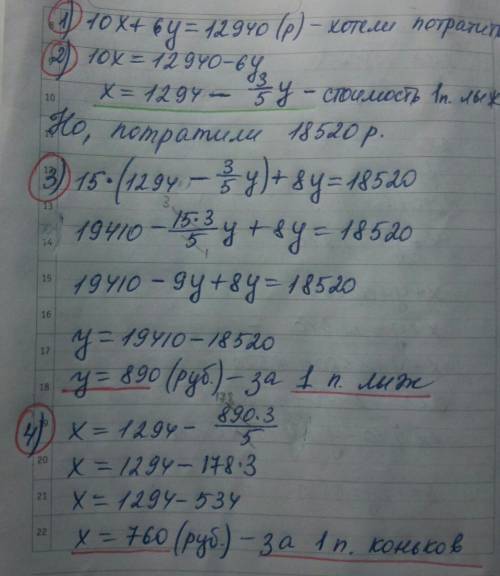 1) 10x + 6y = 12940 (р) - хотели потратить
2) 10x = 12940 - 6y
x = 1294 - 3/5 y - стоимость 1п. лыж
Но, потратили 18520 р.
3) 15·(1294 - 3/5 y) + 8y = 18520
19410 - 15·3/5 y + 8y = 18520
19410 - 9y + 8y = 18520
y = 19410 - 18520
y = 890 (руб.) - за 1 п. лиж
4) x = 1294 - 890·3/5
x = 1294 - 178·3
x = 1294 - 534
x = 760 (руб.) - за 1 п. коньков
10
12
13
14
15
16
17
18
20
21
22